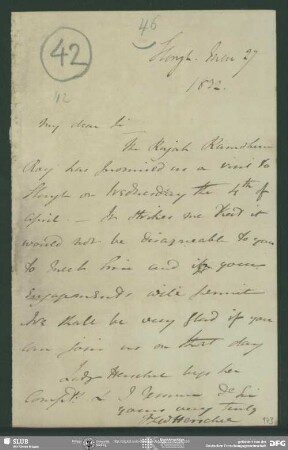 46
42
42
Slough. Mar 27
1832.
My dear Sir
The Rajah Ramohun
Roy has promised us a visit to
Slough on Wednesday the 4th of
April – It strikes me that it
would not be disagreeable to you
to meet him and if your
engagements will permit
we shall be very glad if you
can join us on that day
Lady Herschel begs her
Compts. & I remain Dr Sir
yours very truly
JFW Herschel
SLUB